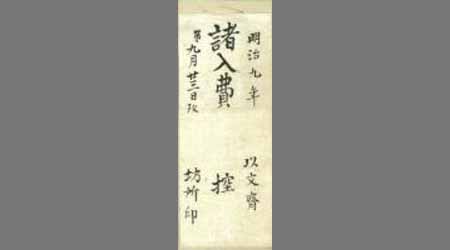 明治九年　以文齊
諸入費　控
第九月廿三日改　坊所印